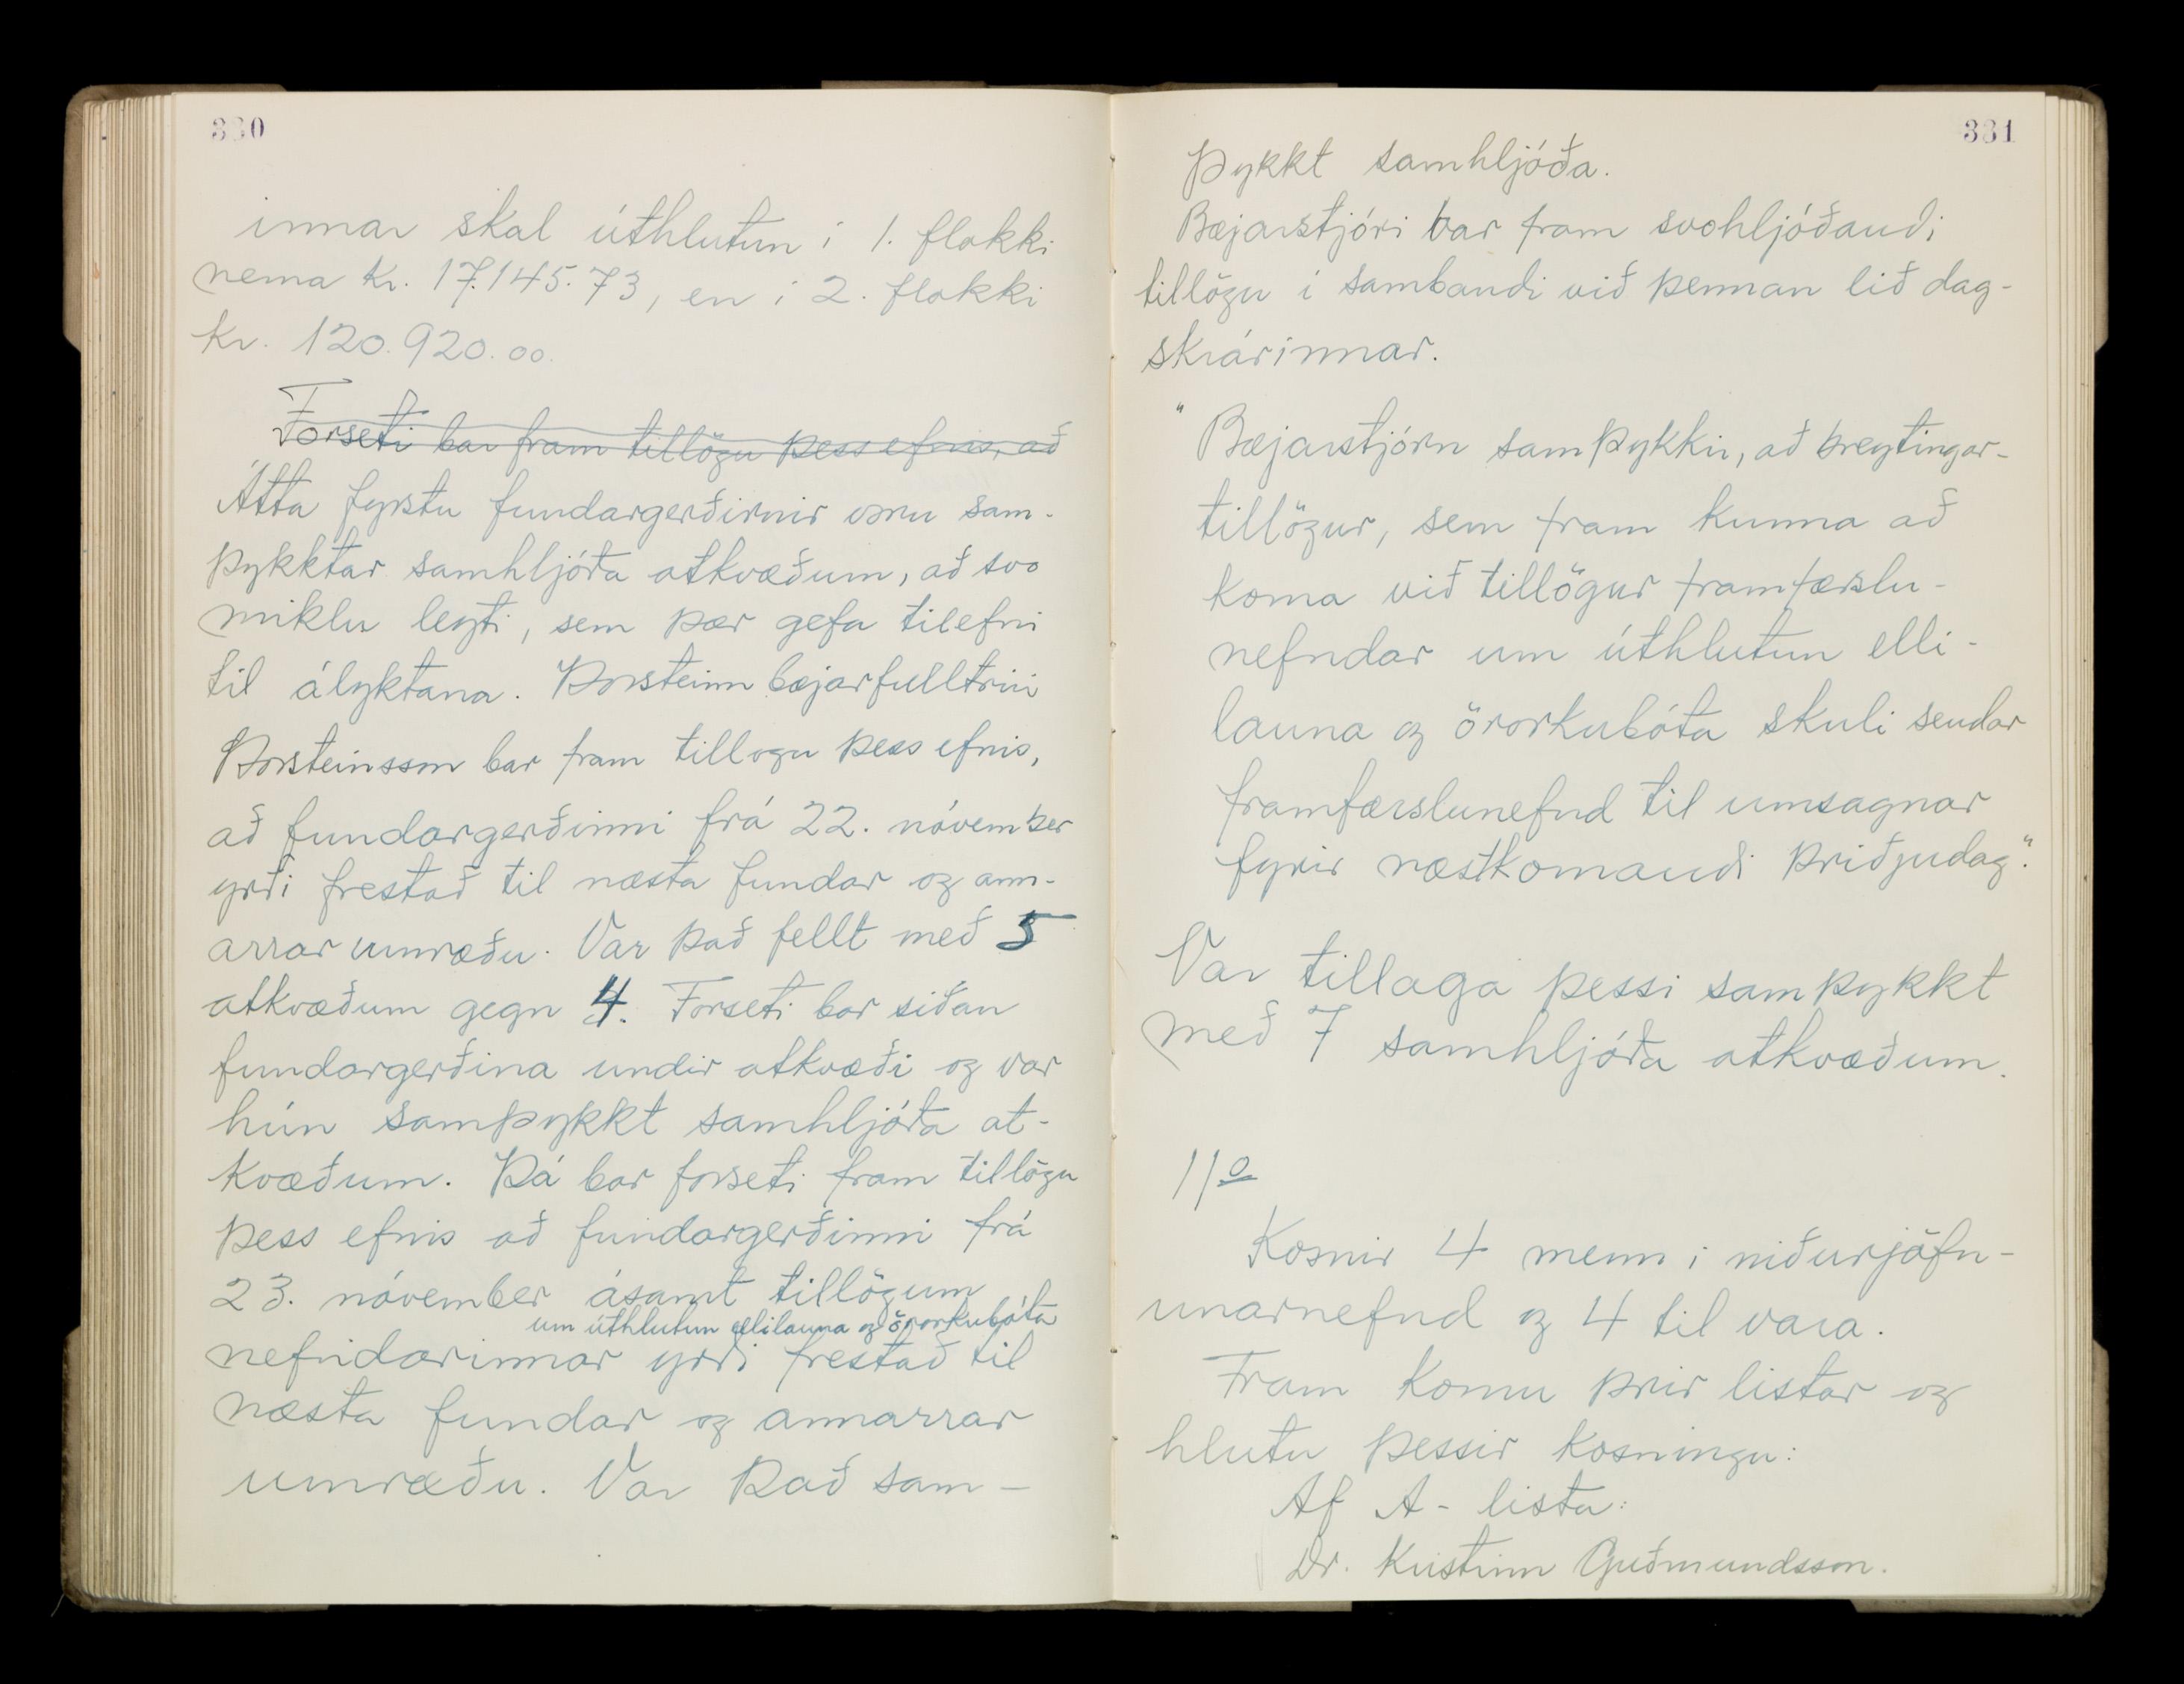 330
innar skal úthlutun í 1. flokki
nema kr. 17.145.73, en í 2. flokki
kr. 120.920.00.
Forseti bar fram tillögu þess efnis, að
Átta fyrstu fundargerðirnir voru sam-
þykktar samhljóða atkvæðum, að svo
miklu leyti, sem þær gefa tilefni
til ályktana. Þorsteinn bæjarfulltrúi
Þorsteinsson bar fram tillogu þess efnis,
að fundargerðinni frá 22. nóvember
yrði frestað til næsta fundar og ann-
arrar umræðu. Var það fellt með 5
atkvæðum gegn 4. Forseti bar síðan
fundargerðina undir atkvæði og var
hún samþykkt samhljóða at-
kvæðum. Þá bar forseti fram tillögu
þess efnis að fundargerðinni frá
23. nóvember ásamt tillögum
um úthlutun ellilauna og örorkubóta
nefndarinnar yrði frestað til
næsta fundar og annarrar
umræðu. Var það sam-
331
þykkt samhljóða.
Bæjarstjóri bar fram svohljóðandi
tillögu í sambandi við þennan lið dag-
skrárinnar.
"Bæjarstjórn samþykkir, að breytingar-
tillögur, sem fram kunna að
koma við tillögur framfærslu-
nefndar um úthlutun elli-
launa og örorkubóta skuli sendar
framfærslunefnd til umsagnar
fyrir næstkomandi þriðjudag."
Var tillaga þessi samþykkt
með 7 samhljóða atkvæðum.
11º
Kosnir 4 menn í niðurjöfn-
unarnefnd og 4 til vara.
Fram komu þrír listar og
hlutu þessir kosningu:
Af A-lista:
Dr. Kristinn Guðmundsson.